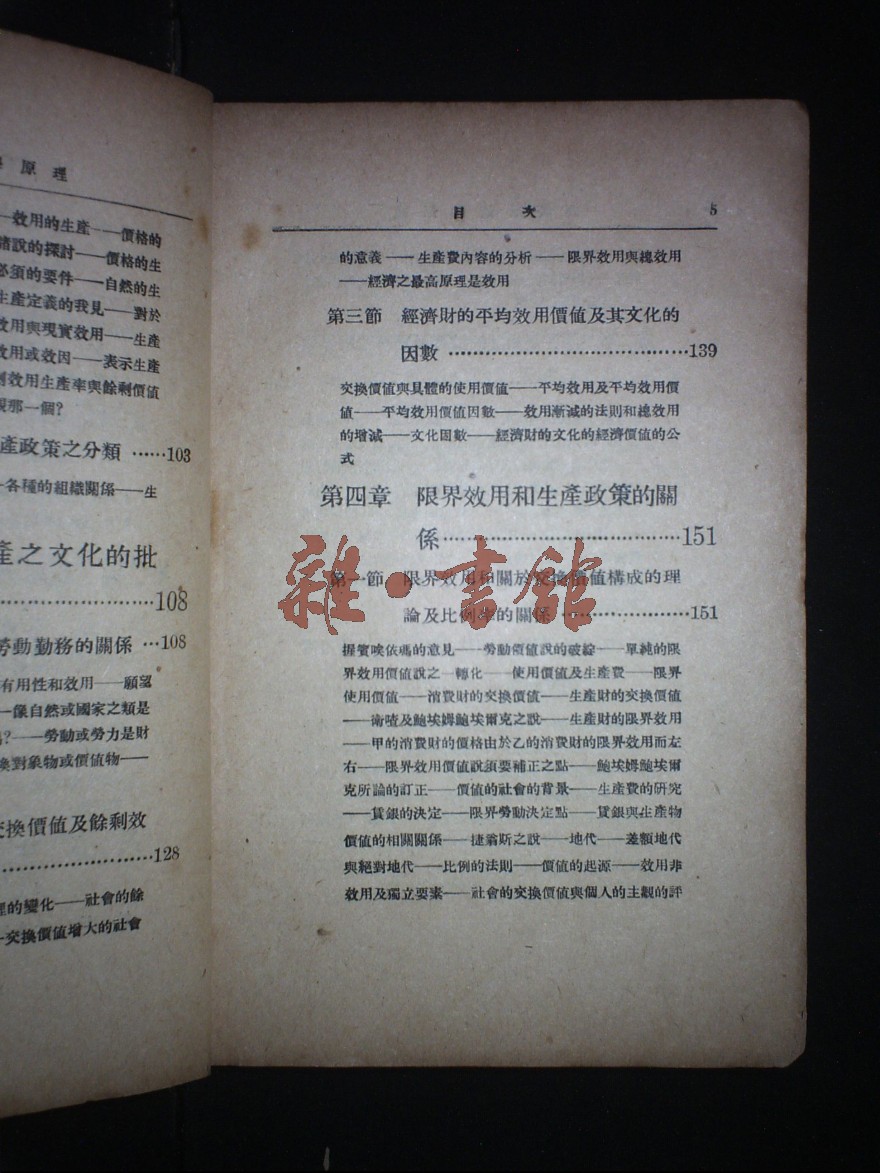 原理
效用的生產——價格的
諸說的探討——價格的生
必須的要件——自然的生
生產定義的我見——對於
效用與現實效用——生產
效用或效因——表示生產
效用生產率與餘剩價值
那一個?
產政策之分類 ……103
各種的組織關係——生
產之文化的批
……108
勞動勤務的關係 …108
有用性和效用——願望
一像自然或國家之類是
?——勞動或勞力是財
換對象物或價值物——
交換價值及餘剩效
……128
的變化——社會的餘
交換價值增大的社會
目次 5
的意義——生產費內容的分析——限界效用與總效用
——經濟之最高原理是效用
第三節 經濟財的平均效用價值及其文化的
因數 ……139
交換價值與具體的使用價值——平均效用及平均效用價
值——平均效用價值因數——效用漸減的法則和總效用
的增減——文化因數——經濟財的文化的經濟價值的公
式
第四章 限界效用和生產政策的關
係……151
第一節 限界效用和關於交換價値構成的理
論及比例率的關係 ……151
雜·書館
握賓唉依瑪的意見——勞動領値說的破綻——單純的限
界效用價值說之一轉化——使用價值及生產費——限界
使用價值——消費財的交換價值——生產財的交換價值
——衛喳及鮑埃姆鮑埃爾克之說——生產財的限界效用
——甲的消費財的價格由於乙的消費財的限界效用而左
右——限界效用價值說須要補正之點——鮑埃姆鮑埃爾
克所論的訂正——價值的社會的背景——生產費的研究
——賃銀的決定——限界勞動決定點——賃銀與生產物
價值的相關關係——捷翁斯之說——地代——差額地代
與絕對地代——比例的法則——價值的起源——效用非
效用及獨立要素——社會的交換價值與個人的主觀的評